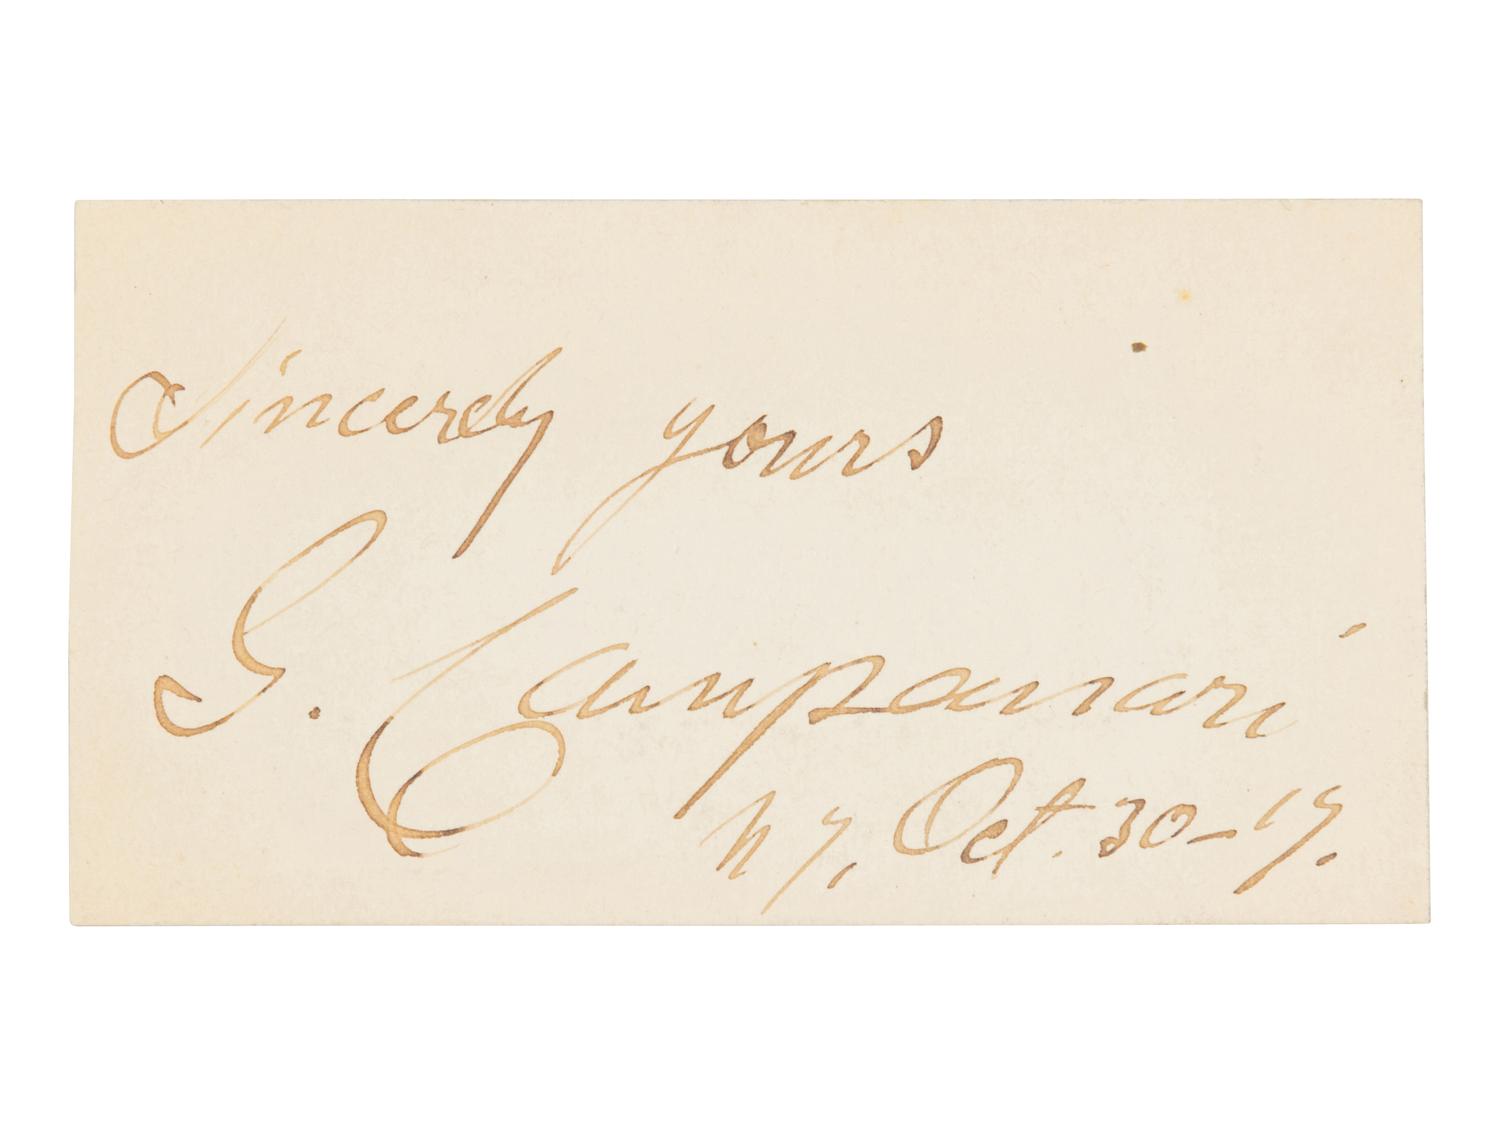 Sincerely yours
G. Campanari
NY, Oct. 30-17.